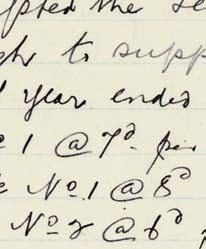 pted the
to supp
year ended
1 @ 7d per
No. 1 @ 8d
No 2 @ 6d